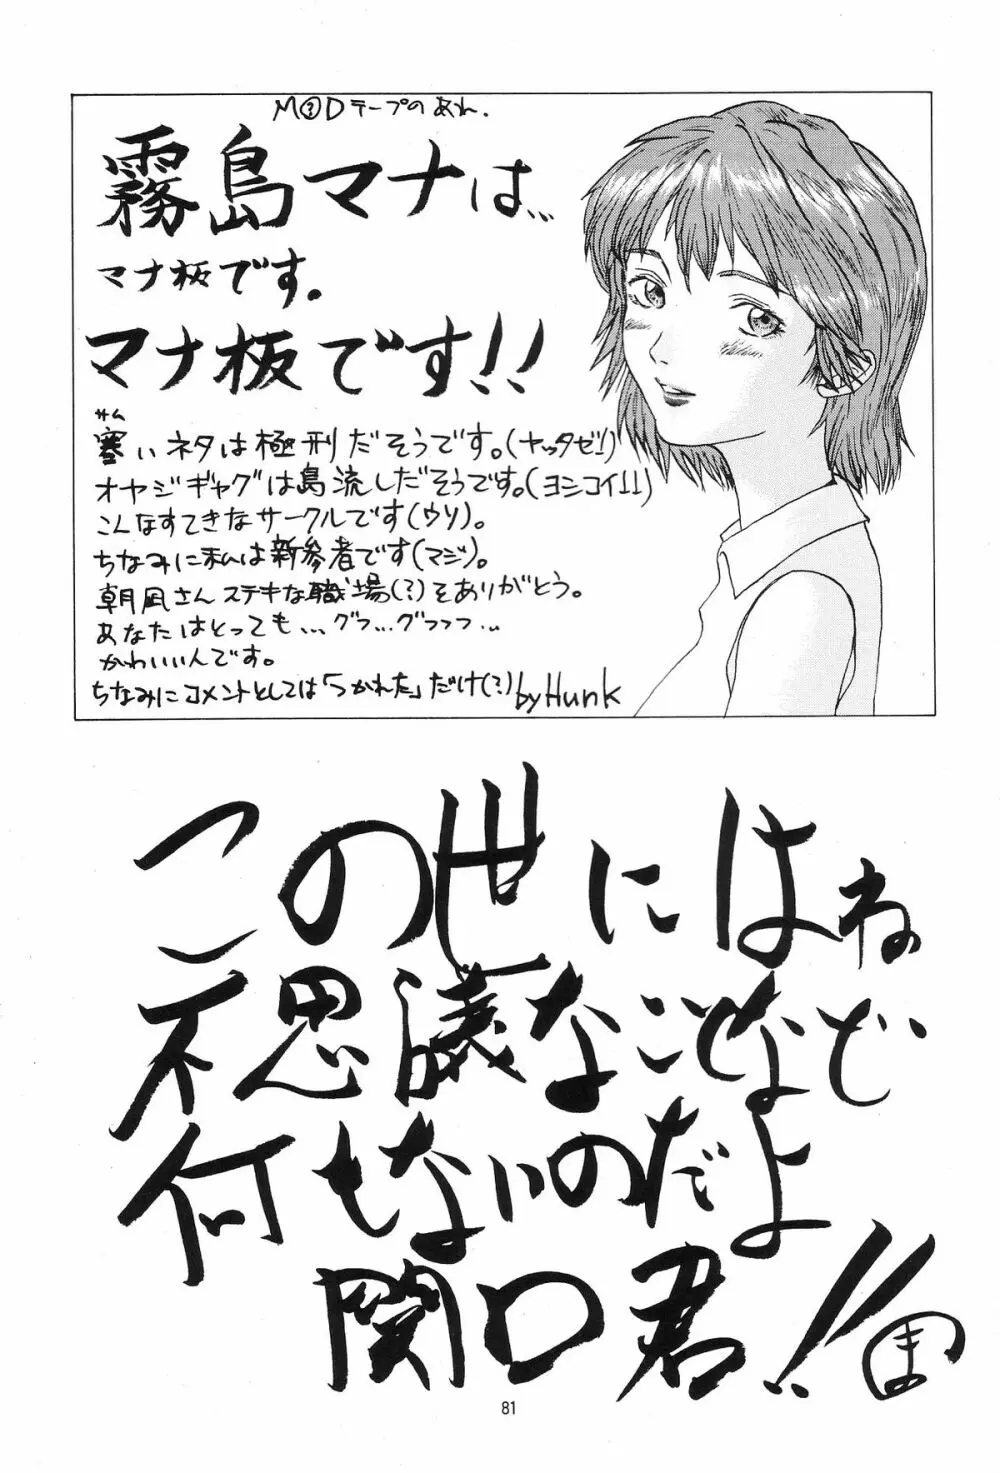 M?Dテープのあれ.
霧島マナは…
マナ板です。
マナ板です!!
サム
塞いネタは極刑だそうです。(ヤッタゼ!)
オヤジギャグは島流しだそうです。(ヨシコイ!!)
こんなすてきなサークルです(ウソ)。
ちなみに私は新参者です(マジ)。
朝凪さんステキな職場(?)をありがとう。
あなたはとっても…グフ…グフフフ…
かわいい人です。
ちなみにコメントとしては「つかれた」だけ(?) by Hunk
この世にはね
不思議なことなど
何もないのだよ
関口君!!
ま
81